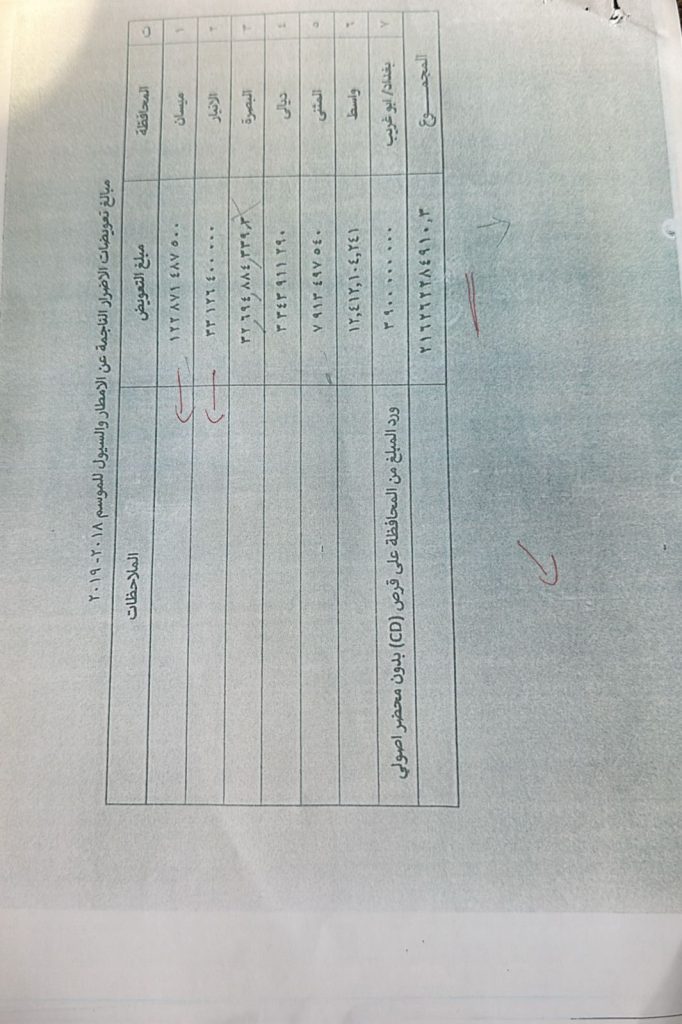 مبالغ تعويضات الاضرار الناجمة عن الامطار والسيول للموسم ٢٠١٨-٢٠١٩
ت المحافظة مبلغ التعويض الملاحظات
١ ميسان ١٢٢ ٨٧١ ٤٨٧ ٥٠٠
٢ الانبار ٣٣ ١٢٦ ٤٠٠ ٠٠٠
٣ البصرة ٣٢ ٦٩٤,٨٨٤,٣٣٩,٣
٤ ديالى ٣ ٣٤٣ ٩١١ ٢٩٠
٥ المثنى ٧ ٩١٣ ٤٩٧ ٥٤٠
٦ واسط ١٢,٤١٢,١٠٤,٢٤١
٧ بغداد/ ابو غريب ٣ ٩٠٠ ٠٠٠ ٠٠٠ ورد المبلغ من المحافظة على قرص (CD) بدون محضر اصولي
المجمـــوع ٢١٦٢٦٢٢٨٤٩١٠,٣